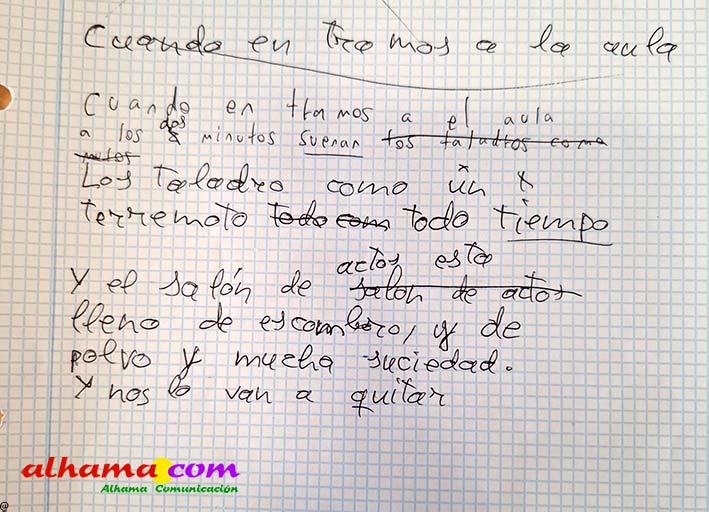 Cuando en tramos a la aula
Cuando en tramos a el aula
a los dos minutos suenan los taladros como
Los Taladro como un
terremoto todo com todo tiempo
actos esta
Y el salón de salón de actos
lleno de escombro, y de
polvo y mucha suciedad.
Y nos lo van a quitar
alhama.com
Alhama Comunicación
@